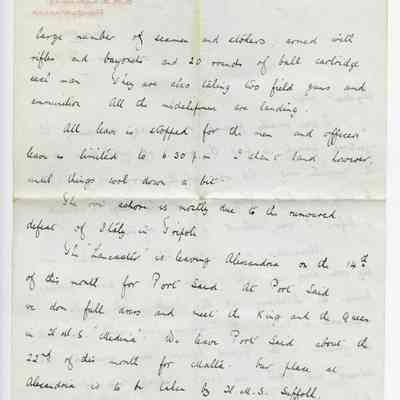 large number of seamen and stokers, armed with
rifles and bayonets and 20 rounds of ball cartridge
each man. They are also taking two field guns and
ammunition. All the midshipmen are landing.
All leave is stopped for the men and officers'
leave is limited to 6.30 p.m. I shan't land however,
until things cool down a bit.
The is mostly due to the rumoured
defeat of Italy in Tripoli.
The 'Lancaster' is leaving Alexandria on the 14th
of this month for Port Said. At Port Said
we don full dress and meet the King and the Queen
in H.M.S. 'Medina'. We leave Port Said about the
22nd of this month for Malta. Our place at
Alexandria is to be taken by H.M.S. Suffolk.